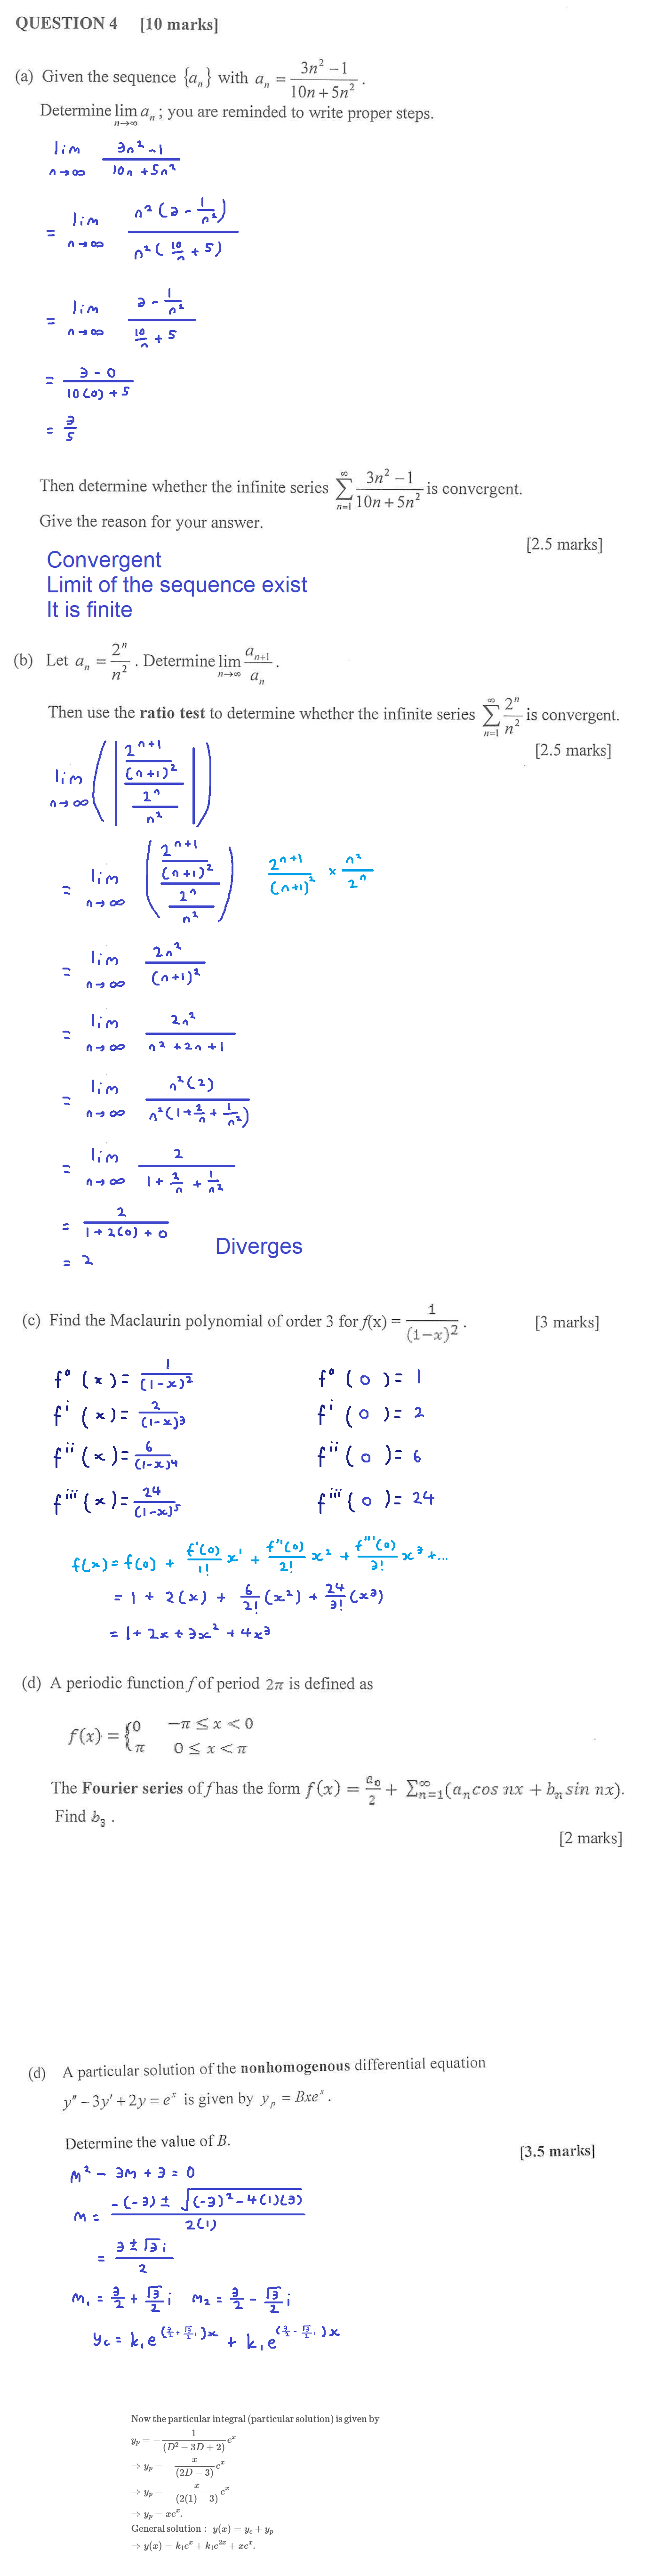 QUESTION 4 [10 marks]
(a) Given the sequence {aₙ} with aₙ = (3n² − 1)/(10n + 5n²).
Determine lim n→∞ aₙ; you are reminded to write proper steps.
lim n→∞ (3n² − 1)/(10n + 5n²)
= lim n→∞ n²(3 − 1/n²)/n²(10/n + 5)
= lim n→∞ (3 − 1/n²)/(10/n + 5)
= (3 − 0)/(10(0) + 5)
= 3/5
Then determine whether the infinite series ∑ n=1 ∞ (3n² − 1)/(10n + 5n²) is convergent.
Give the reason for your answer.
[2.5 marks]
Convergent
Limit of the sequence exist
It is finite
(b) Let aₙ = 2ⁿ/n². Determine lim n→∞ aₙ₊₁/aₙ.
Then use the ratio test to determine whether the infinite series ∑ n=1 ∞ 2ⁿ/n² is convergent.
[2.5 marks]
lim n→∞ (|(2ⁿ⁺¹/(n+1)²)/(2ⁿ/n²)|)
= lim n→∞ ((2ⁿ⁺¹/(n+1)²)/(2ⁿ/n²)) 2ⁿ⁺¹/(n+1)² × n²/2ⁿ
= lim n→∞ 2n²/(n+1)²
= lim n→∞ 2n²/(n² + 2n + 1)
= lim n→∞ n²(2)/n²(1 + 2/n + 1/n²)
= lim n→∞ 2/(1 + 2/n + 1/n²)
= 2/(1 + 2(0) + 0)
= 2 Diverges
(c) Find the Maclaurin polynomial of order 3 for f(x) = 1/(1−x)². [3 marks]
f⁰(x) = 1/(1−x)² f⁰(0) = 1
fⁱ(x) = 2/(1−x)³ fⁱ(0) = 2
fⁱⁱ(x) = 6/(1−x)⁴ fⁱⁱ(0) = 6
fⁱⁱⁱ(x) = 24/(1−x)⁵ fⁱⁱⁱ(0) = 24
f(x) = f(0) + f'(0)/1! x¹ + f''(0)/2! x² + f'''(0)/3! x³ + ...
= 1 + 2(x) + 6/2! (x²) + 24/3! (x³)
= 1 + 2x + 3x² + 4x³
(d) A periodic function f of period 2π is defined as
f(x) = {0 −π ≤ x < 0
π 0 ≤ x < π
The Fourier series of f has the form f(x) = a₀/2 + ∑ n=1 ∞ (aₙ cos nx + bₙ sin nx).
Find b₃.
[2 marks]
(d) A particular solution of the nonhomogenous differential equation
y″ − 3y′ + 2y = eˣ is given by yₚ = Bxeˣ.
Determine the value of B.
[3.5 marks]
m² − 3m + 3 = 0
m = (−(−3) ± √((−3)² − 4(1)(3)))/2(1)
= (3 ± √3 i)/2
m₁ = 3/2 + √3/2 i m₂ = 3/2 − √3/2 i
y_c = k₁e^(3/2 + √3/2 i)x + k₁e^(3/2 − √3/2 i)x
Now the particular integral (particular solution) is given by
yₚ = −1/(D² − 3D + 2) eˣ
⇒ yₚ = −x/(2D − 3) eˣ
⇒ yₚ = −x/(2(1) − 3) eˣ
⇒ yₚ = xeˣ.
General solution : y(x) = y_c + yₚ
⇒ y(x) = k₁eˣ + k₁e²ˣ + xeˣ.